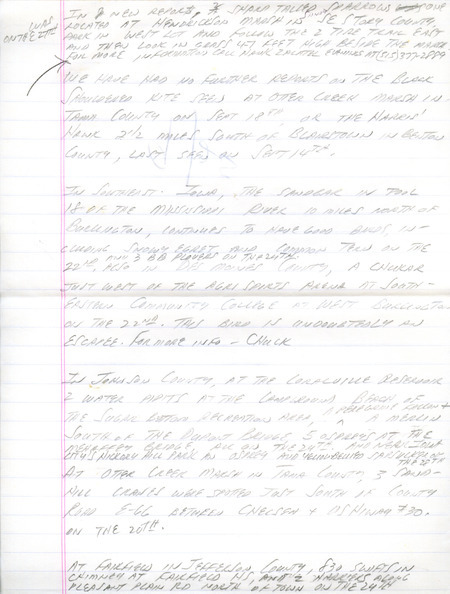 WAS
ON THE 21ST
IN 8 NEW REPORTS, SHARP TAILED SPARROWS
LOCATED AT HENDRICKSON MARSH IN SE STORY COUNTY,
PARK IN WEST LOT AND FOLLOW THE 2 TIRE TRAIL EAST
AND THEN LOOK IN GRASS 4FT FEET HIGH BESIDE THE
FOR MORE INFORMATION CALL HANK EVENINGS AT (515)
WE HAVE HAD NO FURTHER REPORTS ON THE BLACK
SHOULDERED KITE SEEN AT OTTER CREEK MARSH IN
TAMA COUNTY ON SEPT 18TH, OR THE HARRIS'
HAWK 2 1/2 MILES SOUTH OF BLAIRSTOWN IN BENTON
COUNTY, LAST SEEN ON SEPT 14TH.
IN SOUTHEAST IOWA, THE SANDBAR IN POOL
18 OF THE MISSISSIPPI RIVER 10 MILES NORTH OF
BURLINGTON, CONTINUES TO HAVE GOOD BIRDS, IN-
CLUDING SNOWY EGRET, AND COMMON TERN ON THE
22ND, AND 3 BB PLOVERS ON THE 24TH.
ALSO IN DES MOINES COUNTY, A CHUKAR
JUST WEST OF THE AGRI SPORTS ARENA AT SOUTH-
EASTERN COMMUNITY COLLEGE AT WEST BURLINGTON
ON THE 22ND. THIS BIRD IS UNDOUBTEDLY AN
ESCAPEE. FOR MORE INFO - CHUCK
IN JOHNSON COUNTY, AT THE CORALVILLE RESERVOIR
2 WATER PIPITS AT THE CAMPGROUND BEACH OF
THE SUGAR BOTTOM RECREATION AREA, A PEREGRINE FALCON + A MERLIN
SOUTH OF THE DUPONT BRIDGE, 5 OSPREYS AT THE
MEHAFFEY BRIDGE, ALL ON THE 20TH AND NEAR IOWA
CITY'S HICKORY HILL PARK AN OSPREY AND YELLOW BELLIED SAPSUCKER ON
THE 25TH
AT OTTER CREEK MARSH IN TAMA COUNTY, 3 SAND-
HILL CRANES WERE SPOTTED JUST SOUTH OF COUNTY
ROAD E-66 BETWEEN CHELSEA + US HIWAY 30.
ON THE 20TH.
AT FAIRFIELD IN JEFFERSON COUNTY, 830 SWIFTS IN
CHIMNEY AT FAIRFIELD HS, AND 2 HARRIERS ALONG
PLEASANT PLAIN RD NORTH OF TOWN ON THE 24TH